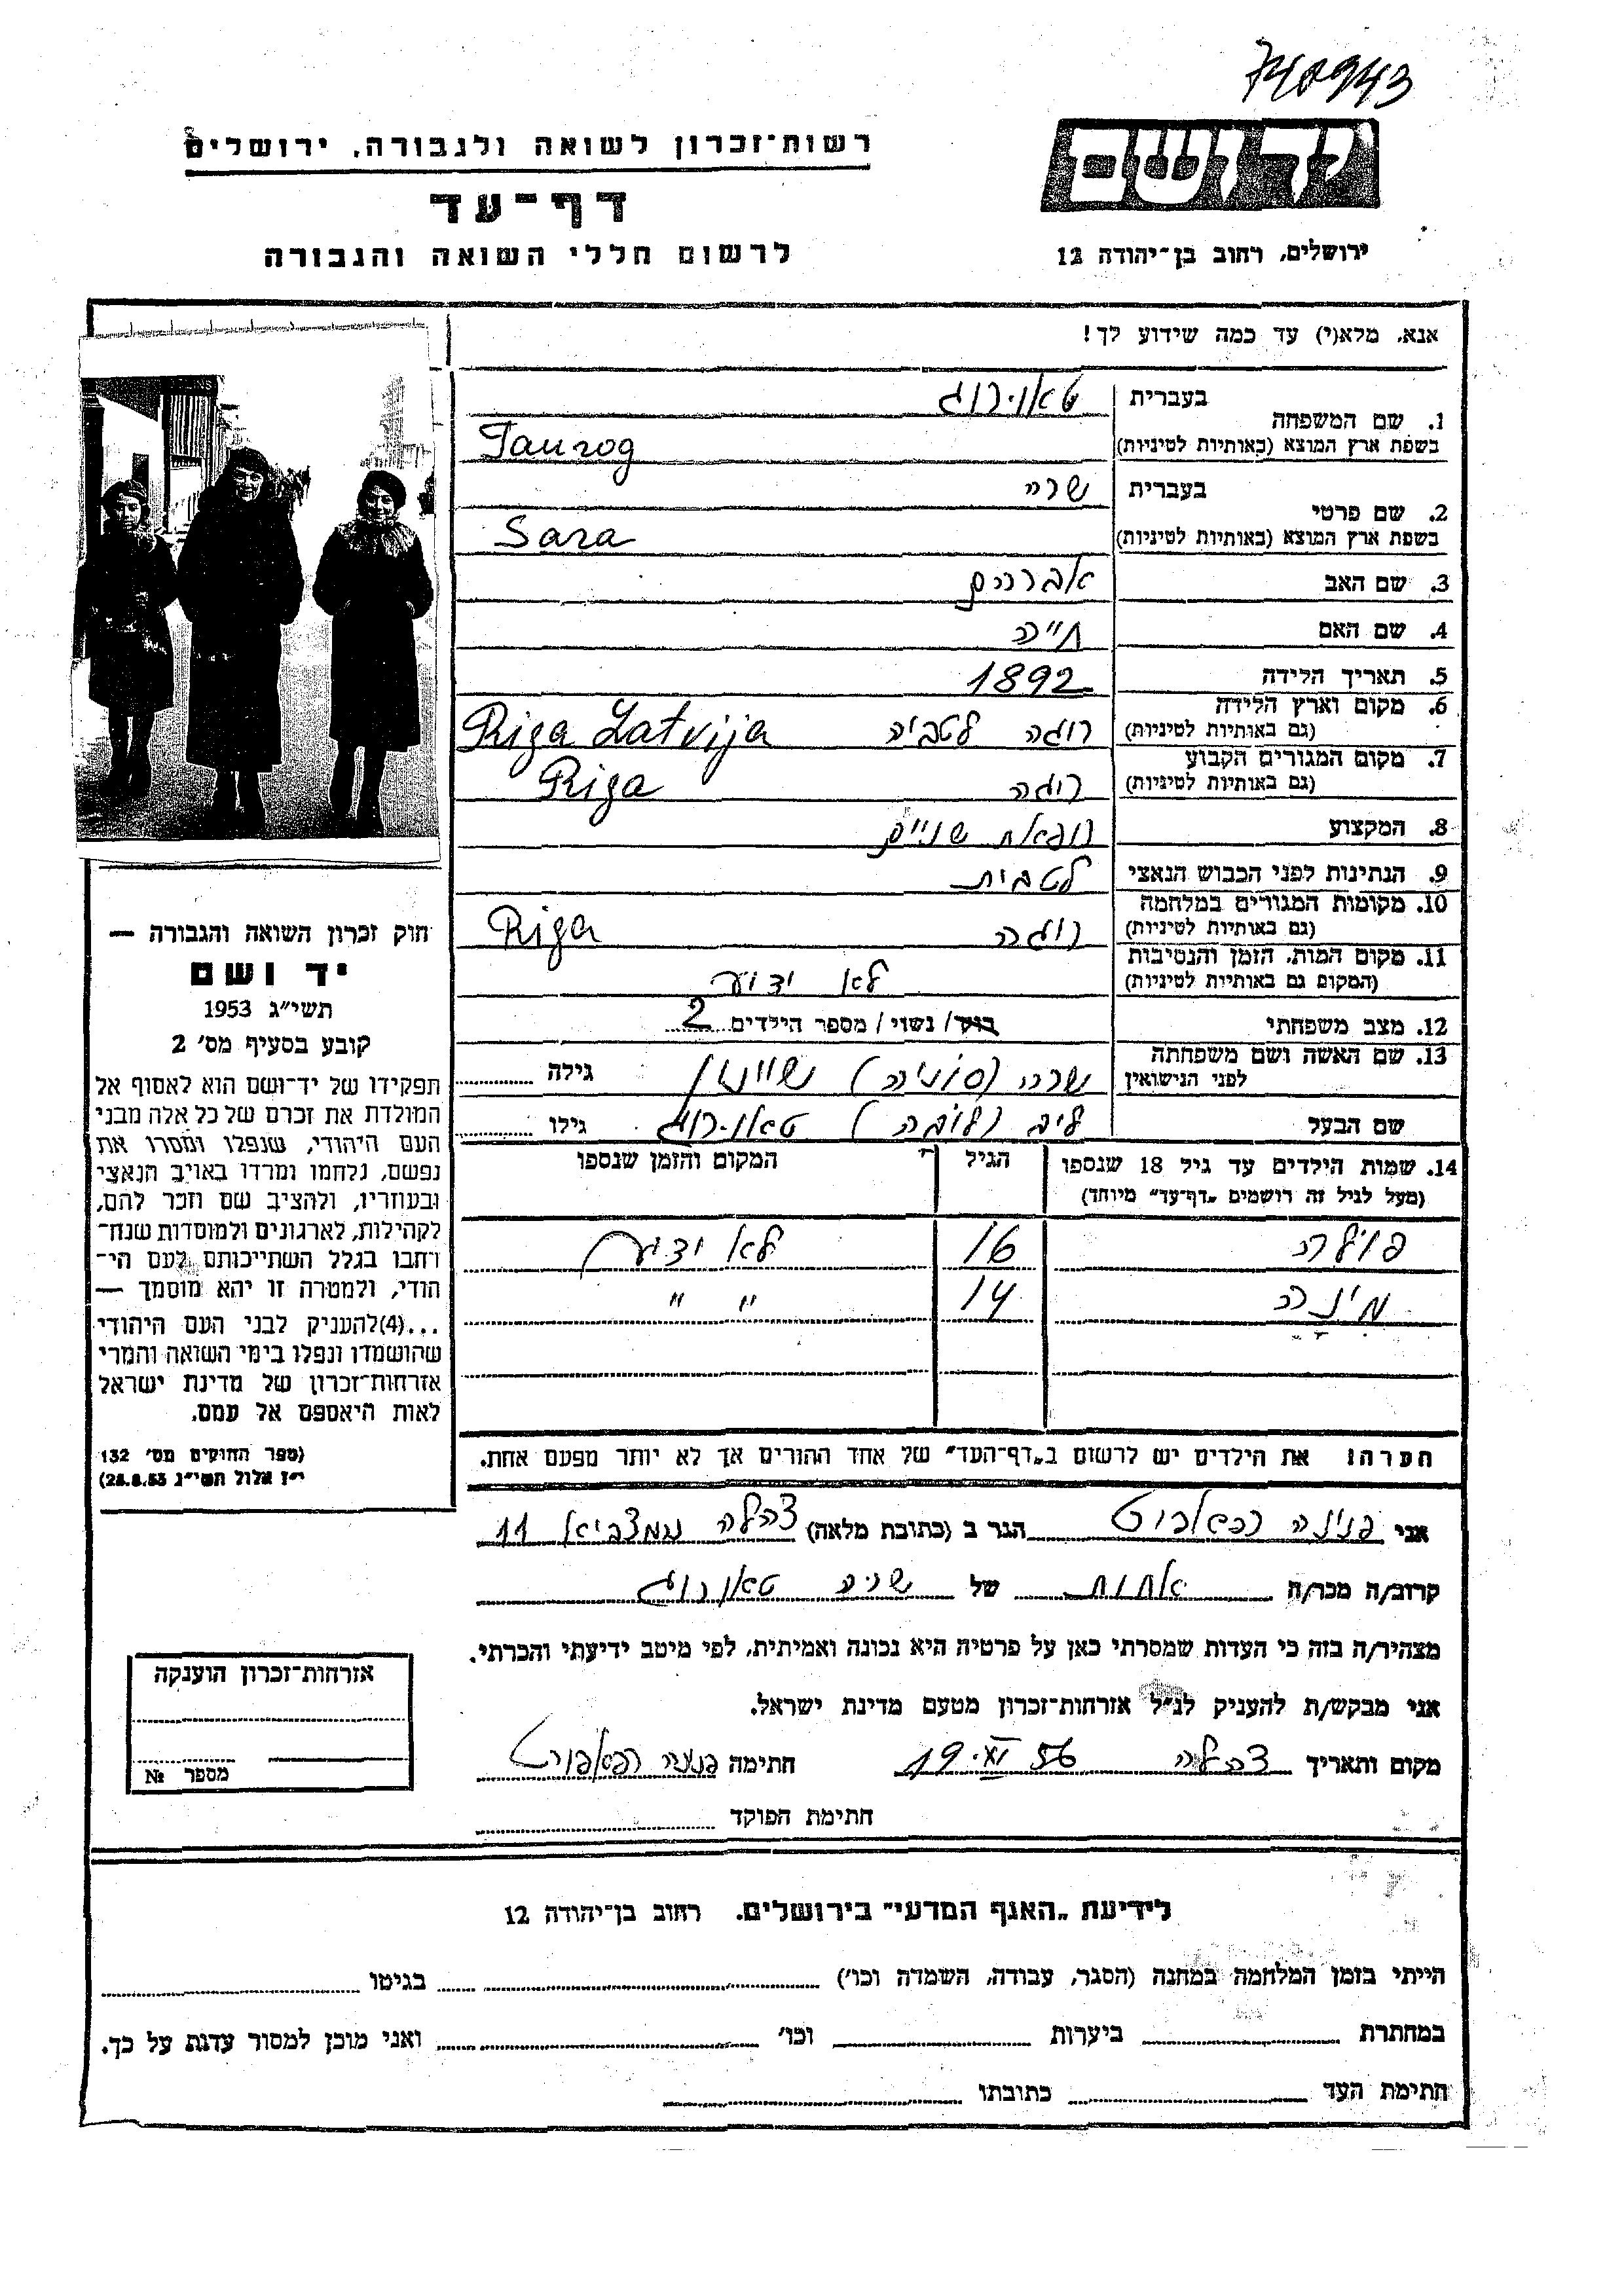 740943
רשות־זכרון לשואה ולגבורה, ירושלים
דף־עד
לרשום חללי השואה והגבורה
יד ושם
ירושלים, רחוב בן־יהודה 12
אנא, מלא(י) עד כמה שידוע לך!
1. שם המשפחה
בעברית טאוירוג
בשפת ארץ המוצא (באותיות לטיניות) Taurog
2. שם פרטי
בעברית שרה
בשפת ארץ המוצא (באותיות לטיניות) Sara
3. שם האב אברהם
4. שם האם חייה
5. תאריך הלידה 1892
6. מקום וארץ הלידה
(גם באותיות לטיניות) ריגה לטביה Riga Latvija
7. מקום המגורים הקבוע
(גם באותיות לטיניות) ריגה Riga
8. המקצוע רופאת שניים
9. הנתינות לפני הכבוש הנאצי לטבית
10. מקומות המגורים במלחמה
(גם באותיות לטיניות) ריגה Riga
11. מקום המות, הזמן והנסיבות
(המקום גם באותיות לטיניות) לא ידוע
12. מצב משפחתי רווק/ נשוי/ מספר הילדים 2
13. שם האשה ושם משפחתה
לפני הנישואין שרה (סוניה) גילה
שם הבעל ליב (לובה) טאוירוג גילו
14. שמות הילדים עד גיל 18 שנספו הגיל המקום והזמן שנספו
(מעל לגיל זה רושמים „דף־עד” מיוחד)
פולה 16 לא ידוע
מינה 14 " "
הערה! את הילדים יש לרשום ב„דף־העד” של אחד ההורים אך לא יותר מפעם אחת.
חוק זכרון השואה והגבורה —
יד ושם
תשי״ג 1953
קובע בסעיף מס׳ 2
תפקידו של יד־ושם הוא לאסוף אל
המולדת את זכרם של כל אלה מבני
העם היהודי, שנפלו ומסרו את
נפשם, נלחמו ומרדו באויב הנאצי
ובעוזריו, ולהציב שם וזכר להם,
לקהילות, לארגונים ולמוסדות שנח־
רבו בגלל השתייכותם לעם הי־
הודי, ולמטרה זו יהא מוסמך —
...(4)להעניק לבני העם היהודי
שהושמדו ונפלו בימי השואה והמרי
אזרחות־זכרון של מדינת ישראל
לאות היאספם אל עמם.
(ספר החוקים מס׳ 132
י״ז אלול תשי״ג 28.8.53)
אני פנינה רפאפורט הגר ב (כתובת מלאה) צהלה 11
קרוב/ה מכר/ה אחות של שרה טאוירוג
מצהיר/ה בזה כי העדות שמסרתי כאן על פרטיה היא נכונה ואמיתית, לפי מיטב ידיעתי והכרתי.
אני מבקש/ת להעניק לנ״ל אזרחות־זכרון מטעם מדינת ישראל.
מקום ותאריך צהלה 19.XI.56 חתימה פנינה רפאפורט
חתימת הפוקד
אזרחות־זכרון הוענקה
מספר №
לידיעת „האגף המדעי” בירושלים, רחוב בן־יהודה 12
הייתי בזמן המלחמה במחנה (הסגר, עבודה, השמדה וכו׳) בגיטו
במחתרת ביערות וכו׳ ואני מוכן למסור עדות על כך.
חתימת העד כתובתו